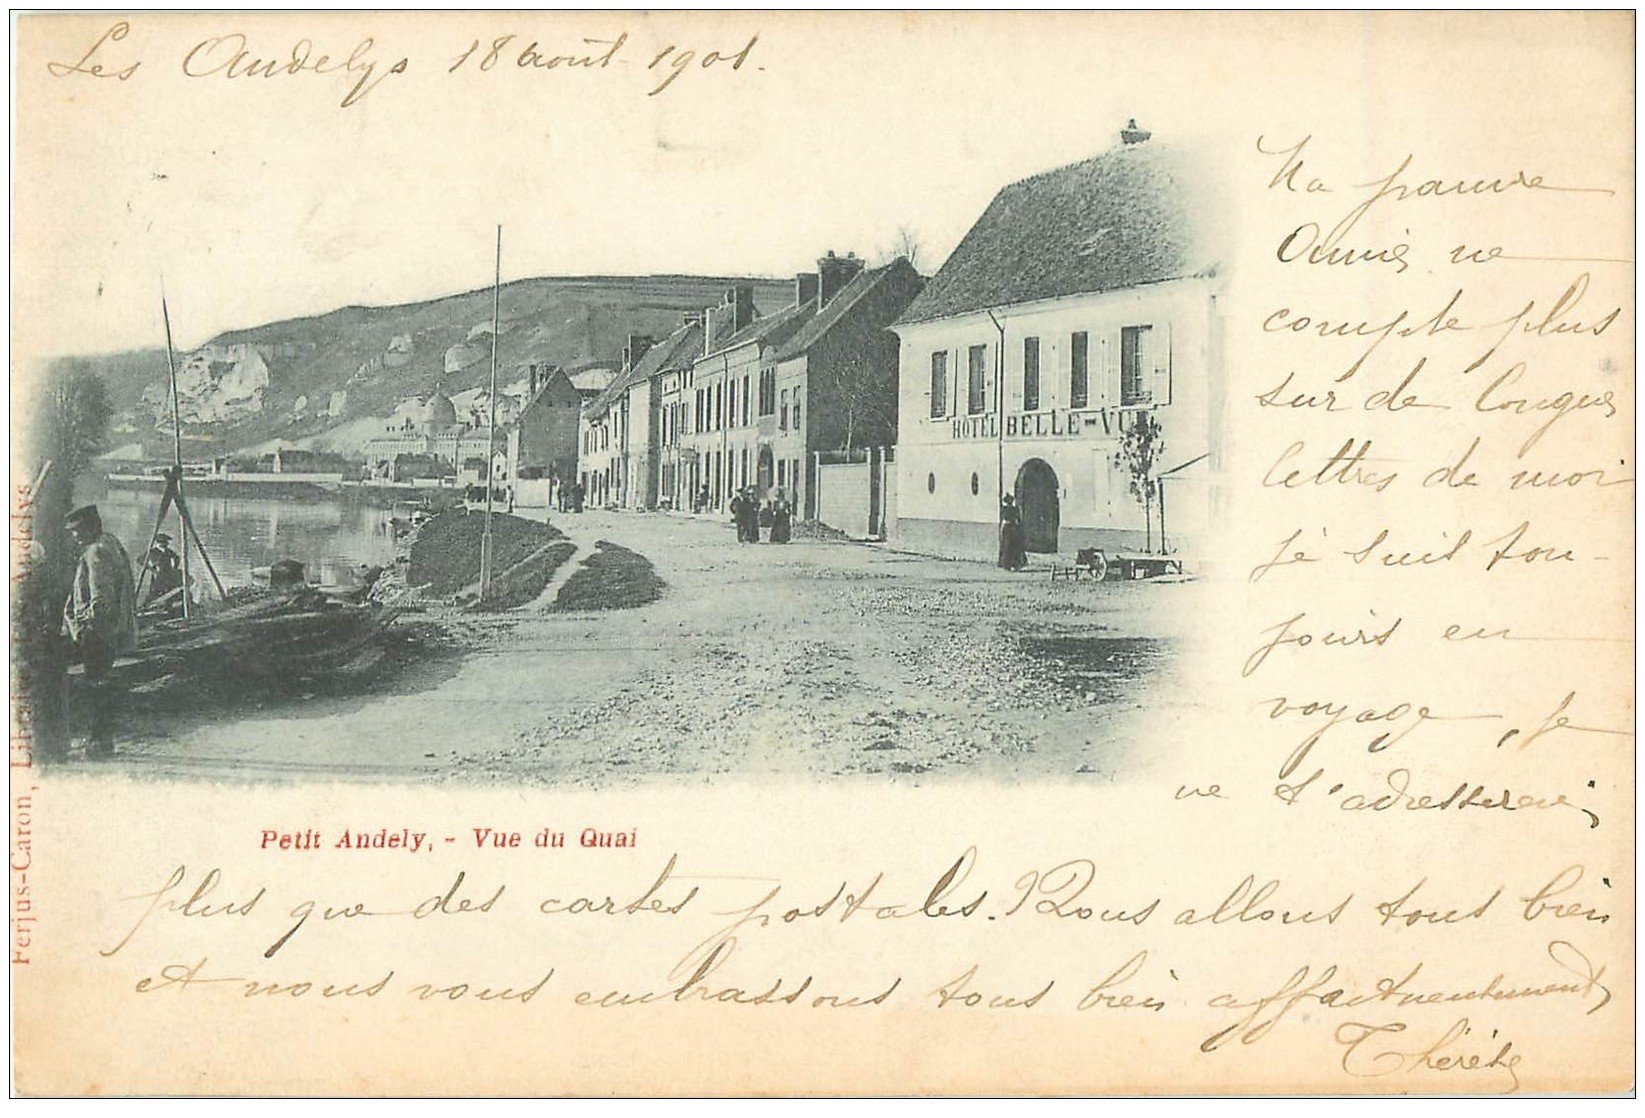 Les Andelys 18 août 1901.
Ma pauvre
Annie, ne
compte plus
sur de longues
lettres de moi
je suis tou-
jours en
voyage, je
ne t'adresserai
plus que des cartes postales. Nous allons tous bien
et nous vous embrassons tous bien affectueusement
Thérèse
HOTEL BELLE-VU
Petit Andely, - Vue du Quai
Ferjus-Caron, Libraire Andelys